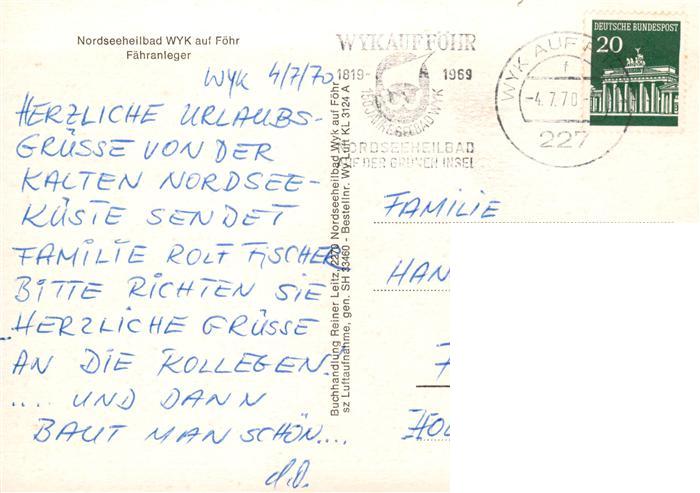 Nordseeheilbad WYK auf Föhr
Fähranleger
WYK 4/7/70
HERZLICHE URLAUBS-
GRÜSSE VON DER
KALTEN NORDSEE-
KÜSTE SENDET
FAMILIE ROLF FISCHER.
BITTE RICHTEN SIE
HERZLICHE GRÜSSE
AN DIE KOLLEGEN!
.... UND DANN
BAUT MAN SCHÖN....
d.O.
Buchhandlung Reiner Leitz, 2270 Nordseeheilbad Wyk auf Föhr
sz Luftaufnahme, gen. SH 33460 - Bestellnr. Wy Luft KL 3124 A
WYK AUF FÖHR
1819- 1969
150 JAHRE SEEBAD WYK
NORDSEEHEILBAD
AUF DER GRÜNEN INSEL
WYK AUF
-4.7.70-
227
DEUTSCHE BUNDESPOST
20
FAMILIE
HAN